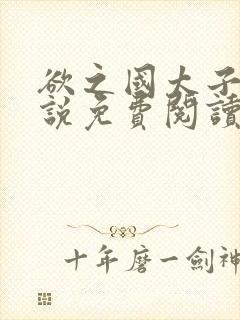 欲之國大子
說免費閱讀
十年磨一劍神